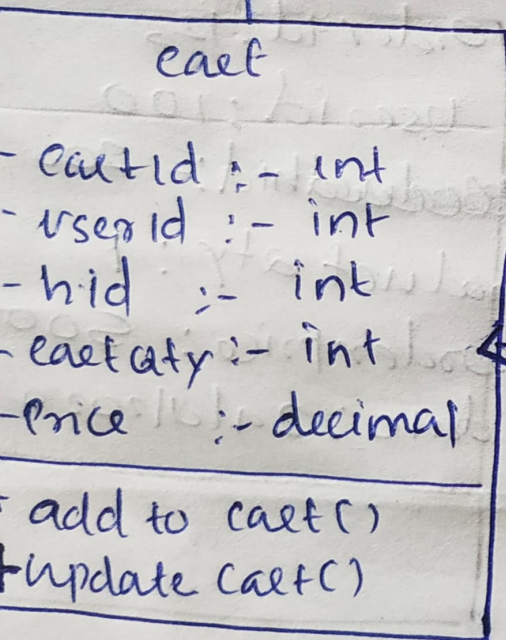 cart
- cartId :- int
- userId :- int
- hid :- int
- cartQty :- int
- Price :- decimal
+ add to cart()
+ update cart()